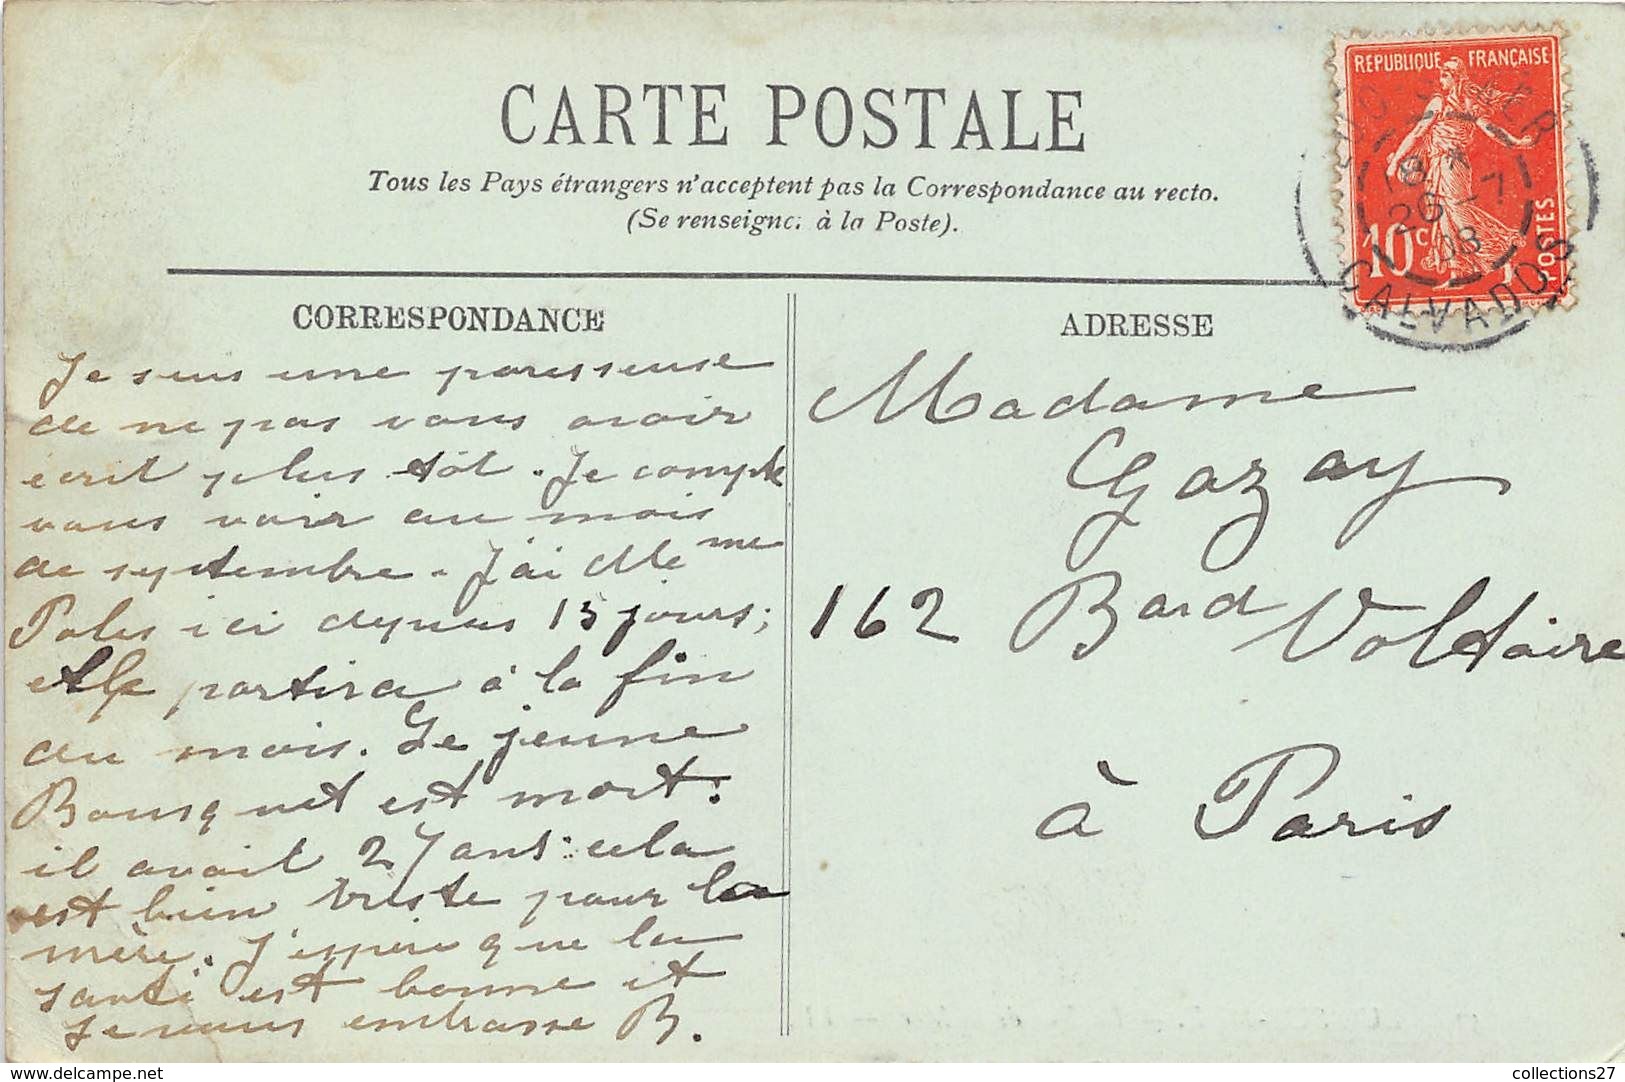 CARTE POSTALE
Tous les Pays étrangers n'acceptent pas la Correspondance au recto.
(Se renseigner à la Poste).
REPUBLIQUE FRANÇAISE
10c
POSTES
26-7
08
CALVADOS
CORRESPONDANCE
Je suis une paresseuse
de ne pas vous avoir
écrit plus tôt. Je compte
vous voir au mois
de septembre. J'ai Mme
Pales ici depuis 15 jours;
elle partira à la fin
du mois. Le jeune
Bousquet est mort:
il avait 27 ans: cela
est bien triste pour la
mère. J'espère que la
santé est bonne et
je vous embrasse B.
ADRESSE
Madame
Gazay
162 Bard Voltaire
à Paris
delcampe.net
collections27